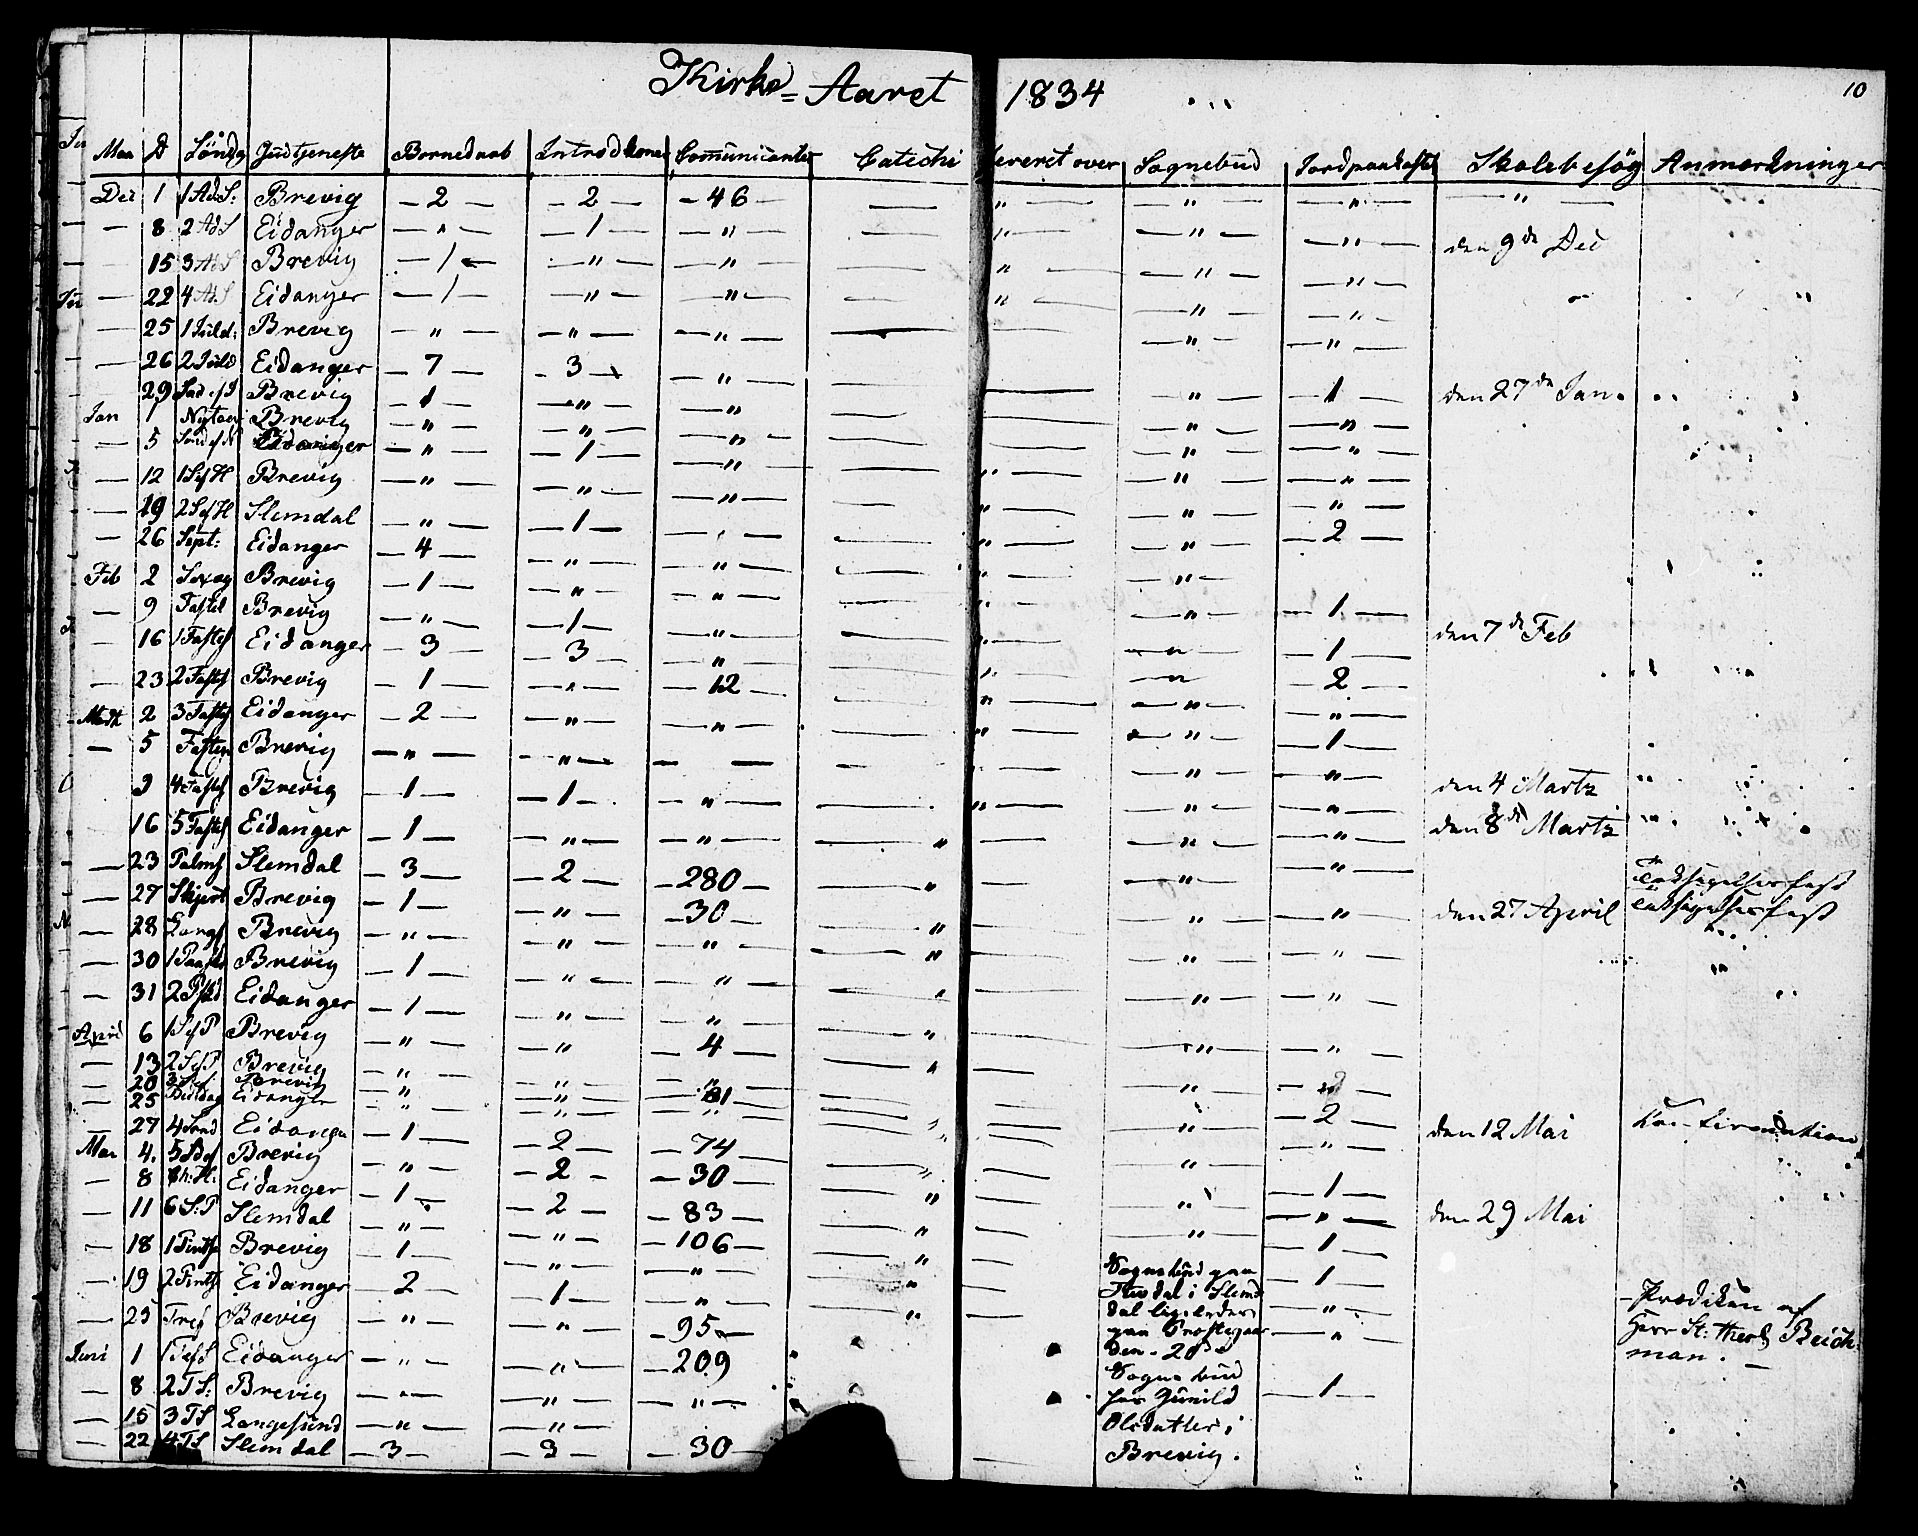 Kirke=Aaret 1834
10
Maa D Sönd Gudtjeneste Bornedaab Introd koner Communicanter Catechi leveret over Sognebud Jordpaakastel Skolebesög Anmærkninger
Dec 1 1 AdS: Brevig — 2 — — 2 — — 46 — — " — — " — — " — — " —
— 8 2 AdS Eidanger — " — — 1 — — " — — " — — " — — " — den 9de Dec
— 15 3 AdS Brevig — 1 — — " — — " — — " — — " — — " —
— 22 4 AdS Eidanger — 1 — — " — — " — — " — — " — — " —
— 25 1 Juled: Brevig — " — — " — — " — — " — — " —
— 26 2 Juled Eidanger — 7 — — 3 — — " —
29 Brevig — 1 — — " — — " — — " — — 1 — den 27de Jan.
Jan 1 Nytaar Brevig — " — — " — — " — — " — — " —
— 5 Eidanger — " — — 1 — — " — — " — — " —
— 12 1 S ef H Brevig — " — — " — — " — — " — — " —
— 19 2 S ef H Slemdal — " — — 1 — — " — — " — — " —
— 26 Sept: Eidanger — 4 — — " — — " — — " — — 2 —
Feb 2 Sexag Brevig — 1 — — " — — " — — " —
— 9 Fastel Brevig — " — — 1 — — " — — " — — 1 —
— 16 1 Fastes Eidanger — 3 — — 3 — — " — — " — — 1 — den 7de Feb
— 23 2 Fastes Brevig — 1 — — " — — 12 — — " — — 2 —
Martz 2 3 Fastes Eidanger — 2 — — " — — " — — " — — " —
— 5 Fasten Brevig — " — — " — — — — " — — 1 —
9 4 Fastes Brevig — 1 — — 1 — — " — — " — — " — den 4 Martz
16 5 Fastes Eidanger — 1 — — " — — " — — " — — " — den 8de Martz
— 23 Palms Slemdal — 3 — — 2 — — 280 — — " — — " —
Taksigelsesfest
— 27 Skjert Brevig — 1 — — " — — 30 — — " — — " — den 27 April Taksigelsesfest
— 28 Langf Brevig — " — — " — — " —
— 30 1 Paaske Brevig — 1 — — " — — " — — " — — " —
— 31 2 Eidanger — 1 — — " — — " — — " — — " —
April 6 1 S ef P Brevig — " — — " — — 4 — — " — — " —
— 13 2 S ef P Brevig — " — — " — — " —
— 20 3 Brevig — " — — " — — 81 —
— 25 Bededag Eidanger — " — — " — — " — — " — — 2 —
27 4 Sönd Eidanger — 1 — — 2 — — 74 — — " — — " — den 12 Mai Confirmation
Mai 4. 5 Brevig — " — — 2 — — 30 —
— 8 Ch: H: Eidanger — 1 — — 2 — — 83 — — 1 —
— 11 6 S: P Slemdal — " — — " — — 106 — — " — — " — den 29 Mai
— 18 1 Pintse Brevig — 1 — — " — — " — — 1 —
— 19 2 Pintse Eidanger — 2 — — 1 — — " — — 1 —
— 25 Tref Brevig — " — — " — — 95 — — " —
Juni 1 1 Eidanger — " — — " — — 209 — — " —
— 8 2 TS: Brevig — " — — " — — " — — 1 —
— 15 3 TS Langesund — " — — " —
— 22 4 TS Slemdal — 3 — — 3 — — 30 —
Sognebud paa
i Slem
dal ligeledes
paa
den 20de
Sognebud
hos Gunild
Olsdatter i
Brevig.
— Prædiken af
Herr St: theol Beich
man. —